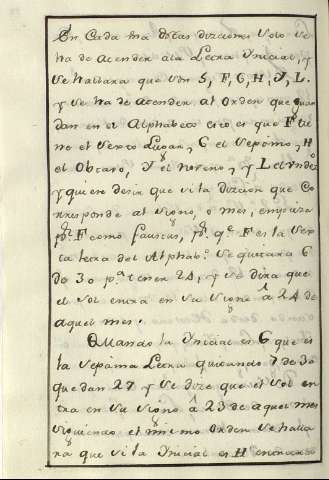 En Cada Una destas diziones Solo Se
ha de Atender ala Letra Ynicial, y
Se hallara que son S, F, G, H, Y, L.
y Se ha de atender al Orden que guar
dan en el Alphabeto esto es que F tie
ne el Sexto Lugar, G el Septimo, H
el Octavo, Y el noveno, y L el Undeo
y quiere dezir que si la dizion que Co
rresponde al Signo, o mes, empieza
pr. F como faustus, pr. qe F es la Sex
ta letra del Alphabo. Se quitara 6
de 30 pa. tener 24, y Se dira que
el Sol entra en Su Signo â 24 de
aquel mes.
Quando la Ynicial es G que es
la Septima Letra quitando 7 de 30
quedan 23 y Se dize que el Sol en
tra en Su Signo â 23 de aquel mes
Siguiendo el mismo Orden Se halla
ra que si la Ynicial es H